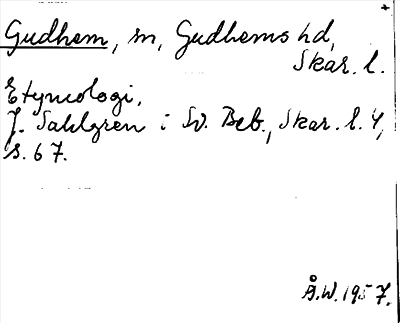 Gudhem, sn, Gudhems hd,
Skar. l.
Etymologi.
J. Sahlgren i Sv. Beb., Skar. l. 4,
s. 67.
Å.W. 1957.